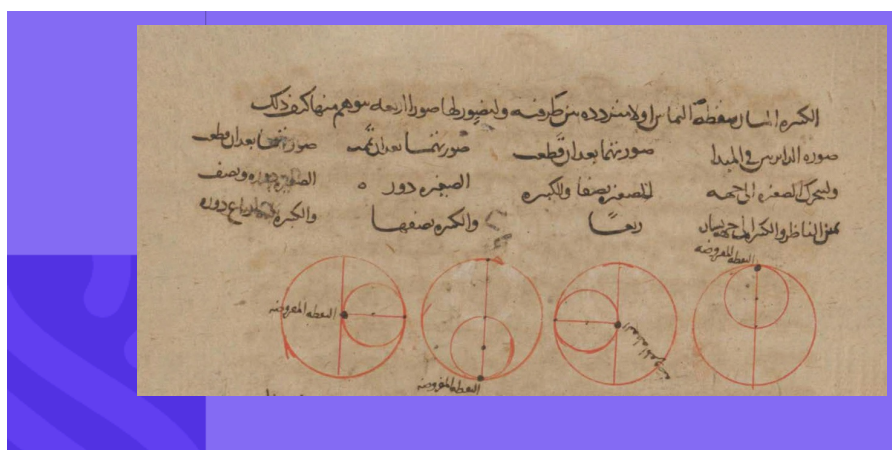 الكبيره نقطة التماس اولا متردده بين طرفيه ولنصور لها صورا اربعه يتوهم منها كيف ذلك
صوره الدائرتين في المبدا
وليتحرك الصغيره الى جهه
يمين الناظر والكبيره الى جهة
صورتهما بعد ان قطعت
الصغيره نصفا والكبيره
ربعًا
صورتهما بعد ان تمت
الصغيره دوره
والكبيره نصفها
صورتهما بعد ان قطعت
الصغيره دوره ونصف
والكبيره ارباع دوره
النقطه المفروضه
النقطه المفروضه
النقطه المفروضه
النقطه المفروضه